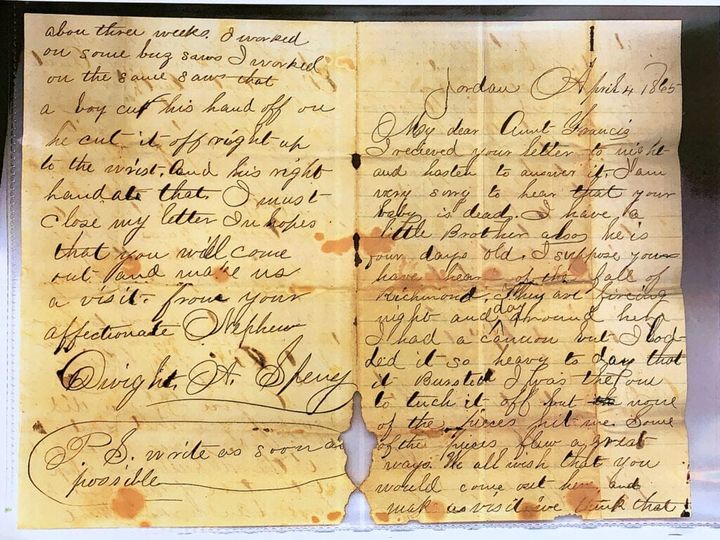 Jordan April 4 1865
My dear Aunt Francis
I recieved your letter to night
and hasten to answer it. I am
very sorry to hear that your
baby is dead. I have a
little Brother also he is
four days old. I suppose you
have hear of the fall of
Richmond. They are fireing
night and day around here
I had a cannon but I lod-
ded it so heavy to day that
it Bussted I was the one
to tuch it off but none
of the pieces hit me. Some
of the pieces flew a great
ways. We all wish that you
would come out here and
mak us visit we think that
abou three weeks. I worked
on some buz saws I worked
on the same saws that
a boy cut his hand off on
he cut it off right up
to the wrist. And his right
hand at that. I must
close my letter In hopes
that you will come
out and make us
a visit. from your
affectionate Nephew
Dwight. A. Spery
P. S. write as soon as
possible